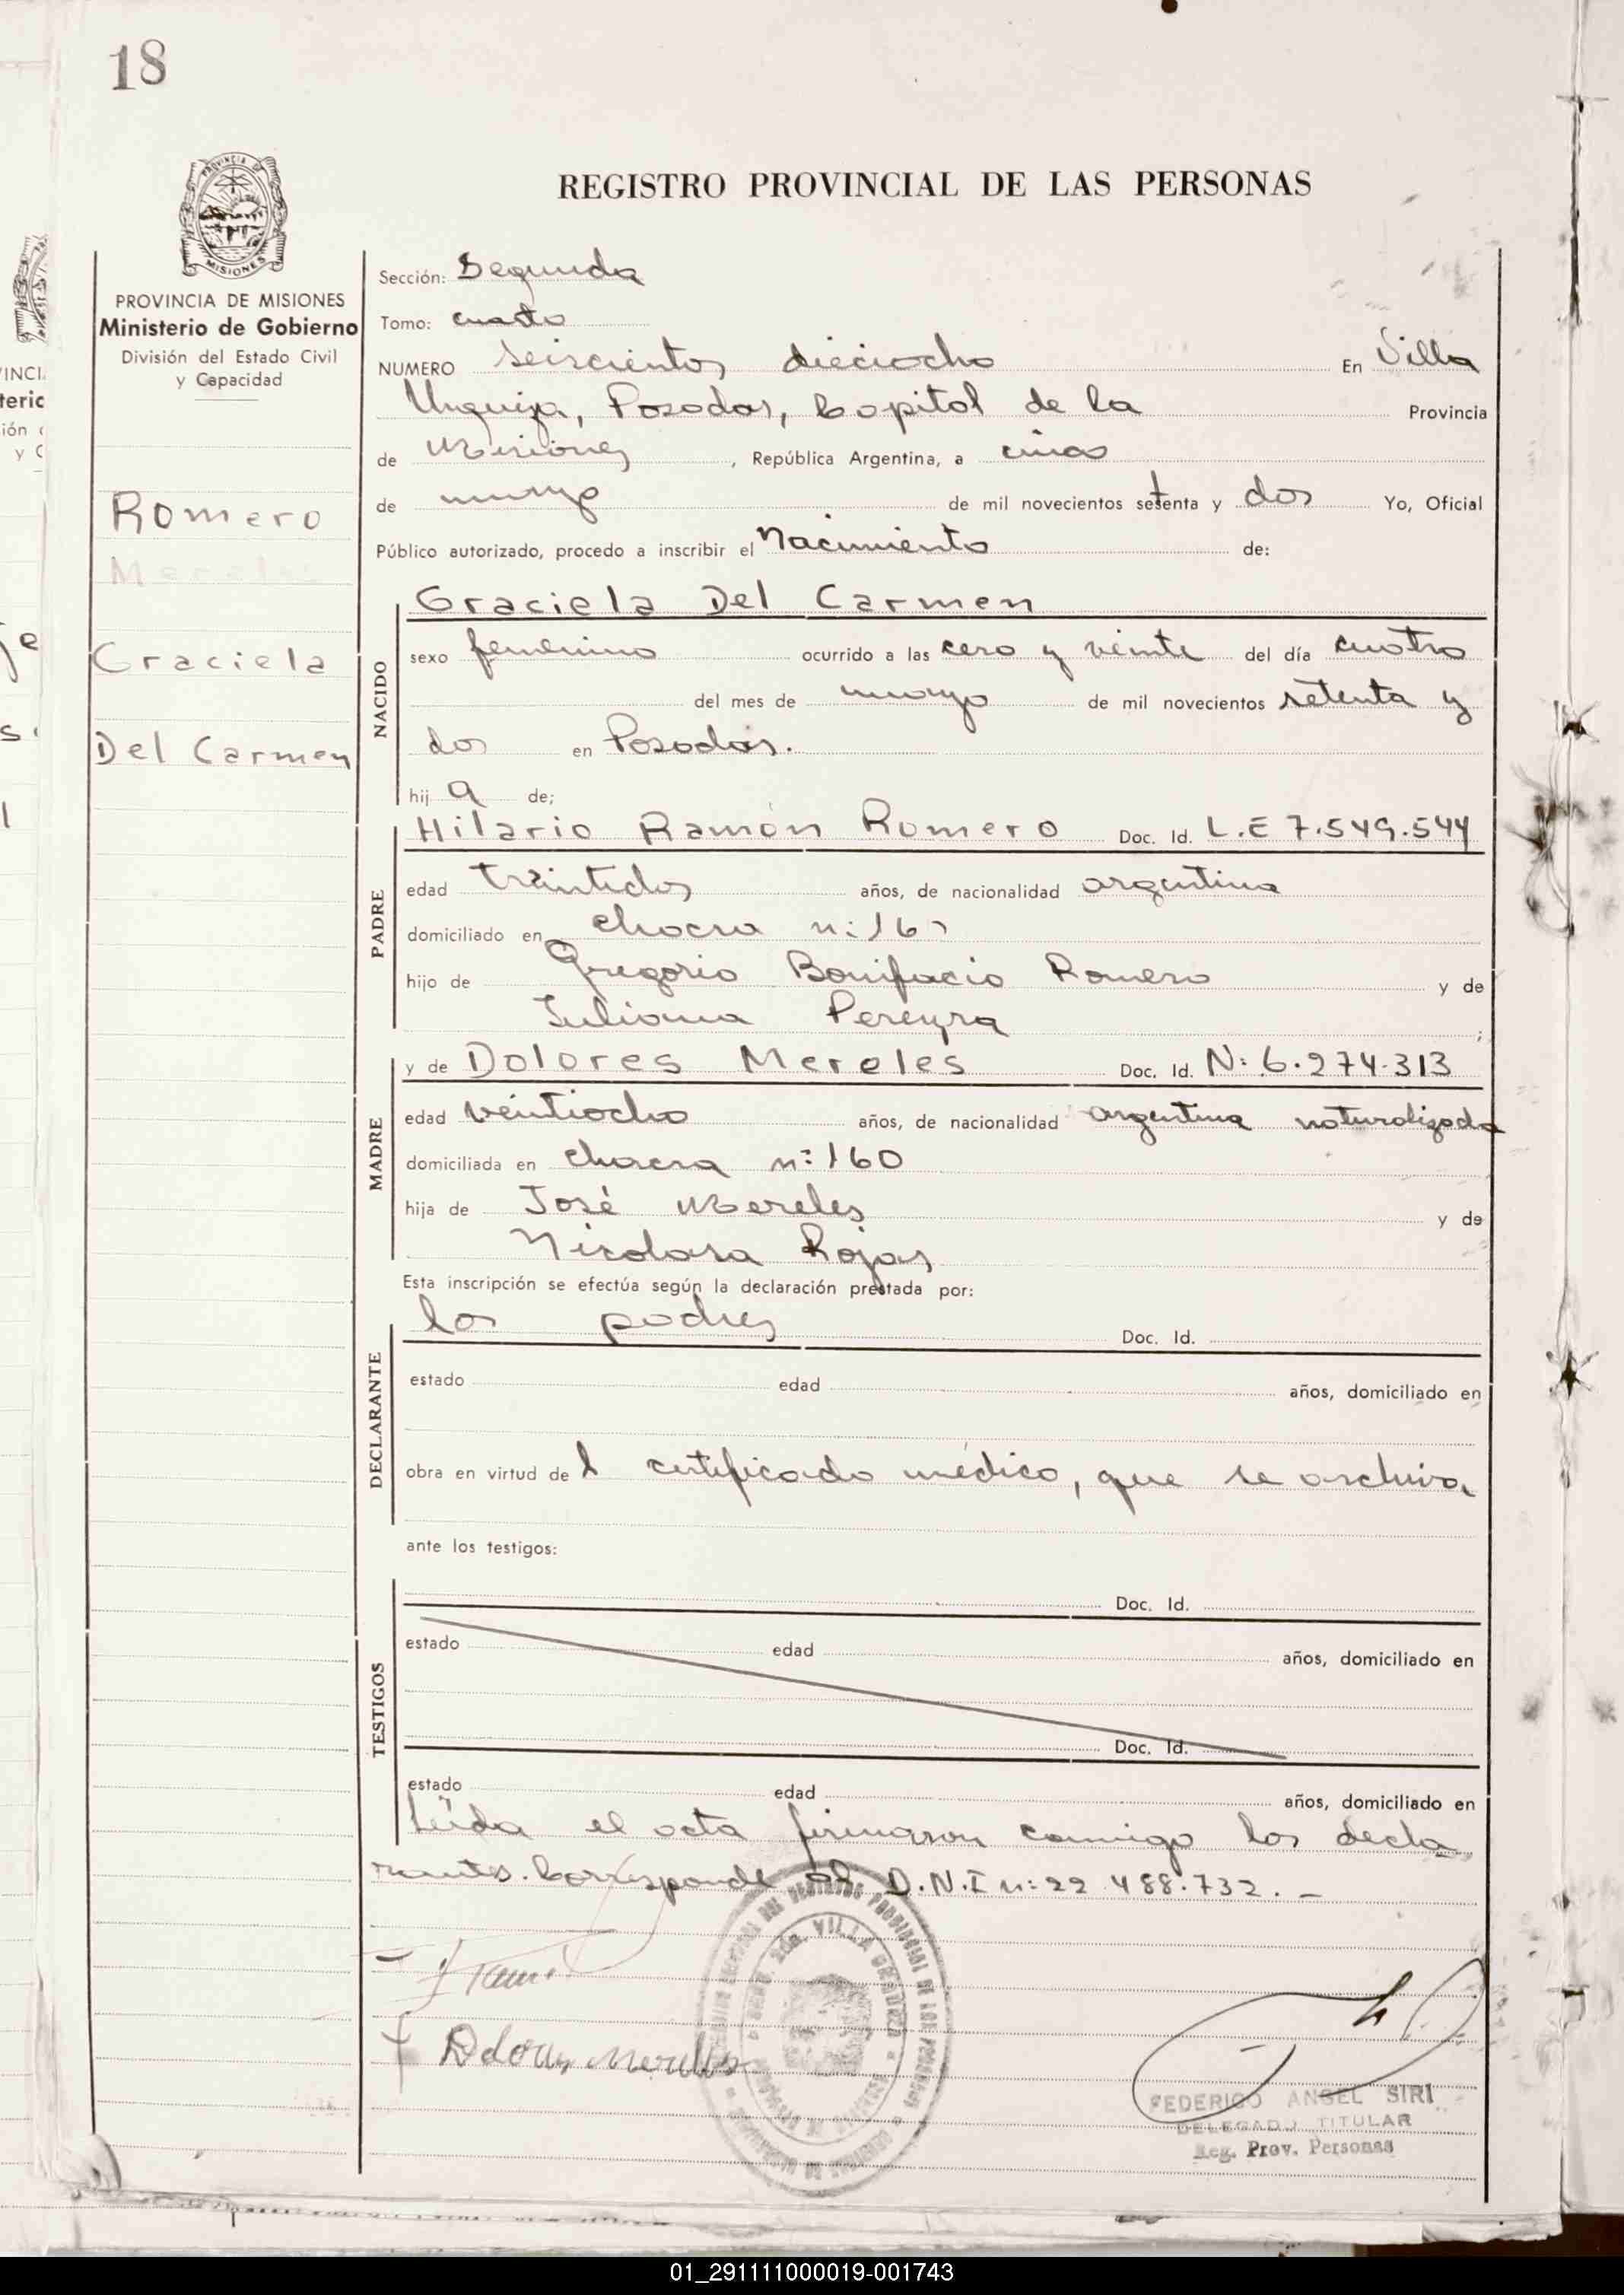 18
REGISTRO PROVINCIAL DE LAS PERSONAS
PROVINCIA DE
MISIONES
PROVINCIA DE MISIONES
Ministerio de Gobierno
División del Estado Civil
y Capacidad
Romero
Mereles
Graciela
Del Carmen
Sección: Segunda
Tomo: cuarto
NUMERO seiscientos dieciocho En Villa
Urquiza, Posadas, Capital de la Provincia
de Misiones, República Argentina, a
de de mil novecientos setenta y dos Yo, Oficial
Público autorizado, procedo a inscribir el Nacimiento de:
NACIDO
Graciela Del Carmen
sexo femenino ocurrido a las cero y veinte del día cuatro
del mes de de mil novecientos setenta y
dos en Posadas.
hij a de;
PADRE
Hilario Ramón Romero Doc. Id. L.E 7.549.544
edad treintidos años, de nacionalidad argentina
domiciliado en chacra n:
hijo de Gregorio Bonifacio Romero y de
Juliana Pereyra ;
MADRE
y de Dolores Mereles Doc. Id. N: 6.274.313
edad veintiocho años, de nacionalidad argentina naturalizada
domiciliada en chacra n: 160
hija de José Mereles y de
Nicolasa Rojas
Esta inscripción se efectúa según la declaración prestada por:
DECLARANTE
los padres Doc. Id.
estado edad años, domiciliado en
obra en virtud de l certificado médico, que se archiva
ante los testigos:
TESTIGOS
Doc. Id.
estado edad años, domiciliado en
Doc. Id.
estado edad años, domiciliado en
Leída el acta firmaron conmigo los decla
rantes. Corresponde al D.N.I n: 22 488.732. -
VILLA URQUIZA
Dolores Mereles
FEDERICO ANGEL SIRI
DELEGADO TITULAR
Reg. Prov. Personas
01_291111000019-001743